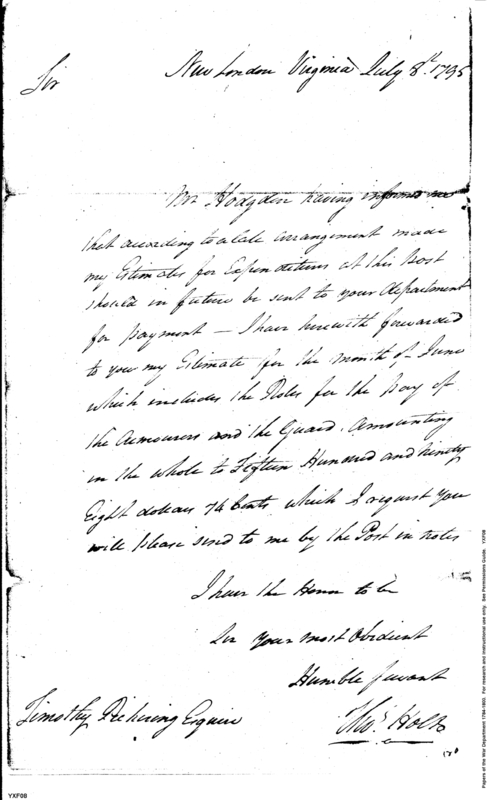 New London Virginia July 8th. 1795
Sir
Mr Hodgden having informed me
that according to a late arrangement made
my Estimates for Expenditures at this Post
should in future be sent to your Department
for payment — I have herewith forwarded
to you my Estimate for the Month of June
which includes the Roles for the Pay of
the Armourers and the Guard, Amounting
in the whole to Fifteen Hundred and Ninety
Eight dollars 74 Cents which I request you
will please send to me by the Post in notes
I have the Honor to be
Sir Your most Obedient
Humble Servant
Thos. Holt
Timothy Pickering Esquire
YXF08
Papers of the War Department 1784-1800. For research and instructional use only. See Permissions Guide. YXF08